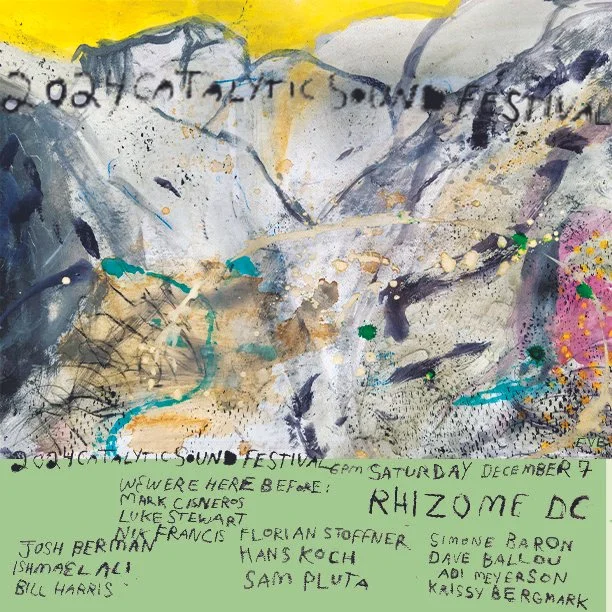 2024 CATALYTIC SOUND FESTIVAL
EVB
2024 CATALYTIC SOUND FESTIVAL 6pm SATURDAY DECEMBER 7
RHIZOME DC
WE WERE HERE BEFORE:
MARK CISNEROS
LUKE STEWART
NIK FRANCIS
JOSH BERMAN
ISHMAEL ALI
BILL HARRIS
FLORIAN STOFFNER
HANS KOCH
SAM PLUTA
SIMONE BARON
DAVE BALLOU
ADI MEYERSON
KRISSY BERGMARK